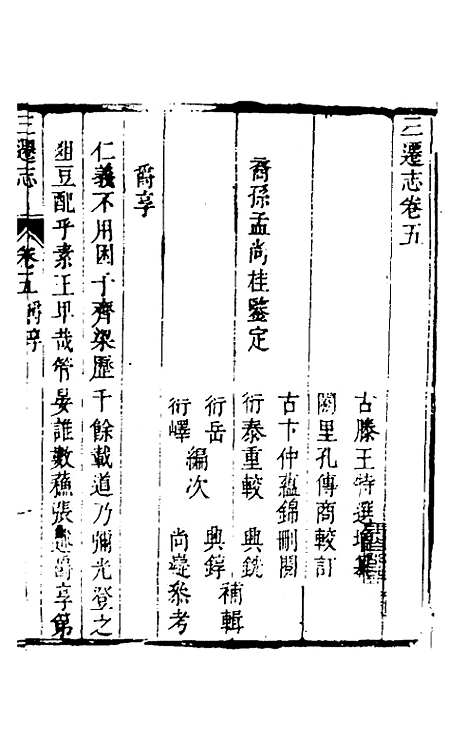 三遷志卷五
古滕王特選增纂
闕里孔傳商較訂
古卞仲蘊錦刪閱
裔孫孟尚桂鑒定
衍泰重較　興銑
補輯
衍岳　　　興錞
編次
衍嶧　　　尚𡹇叅考
爵享
仁義不用困于齊梁歷千餘載道乃彌光登之
俎豆配乎素王卑哉管晏誰數蘇張述爵享第
三遷志　卷五　爵享　一